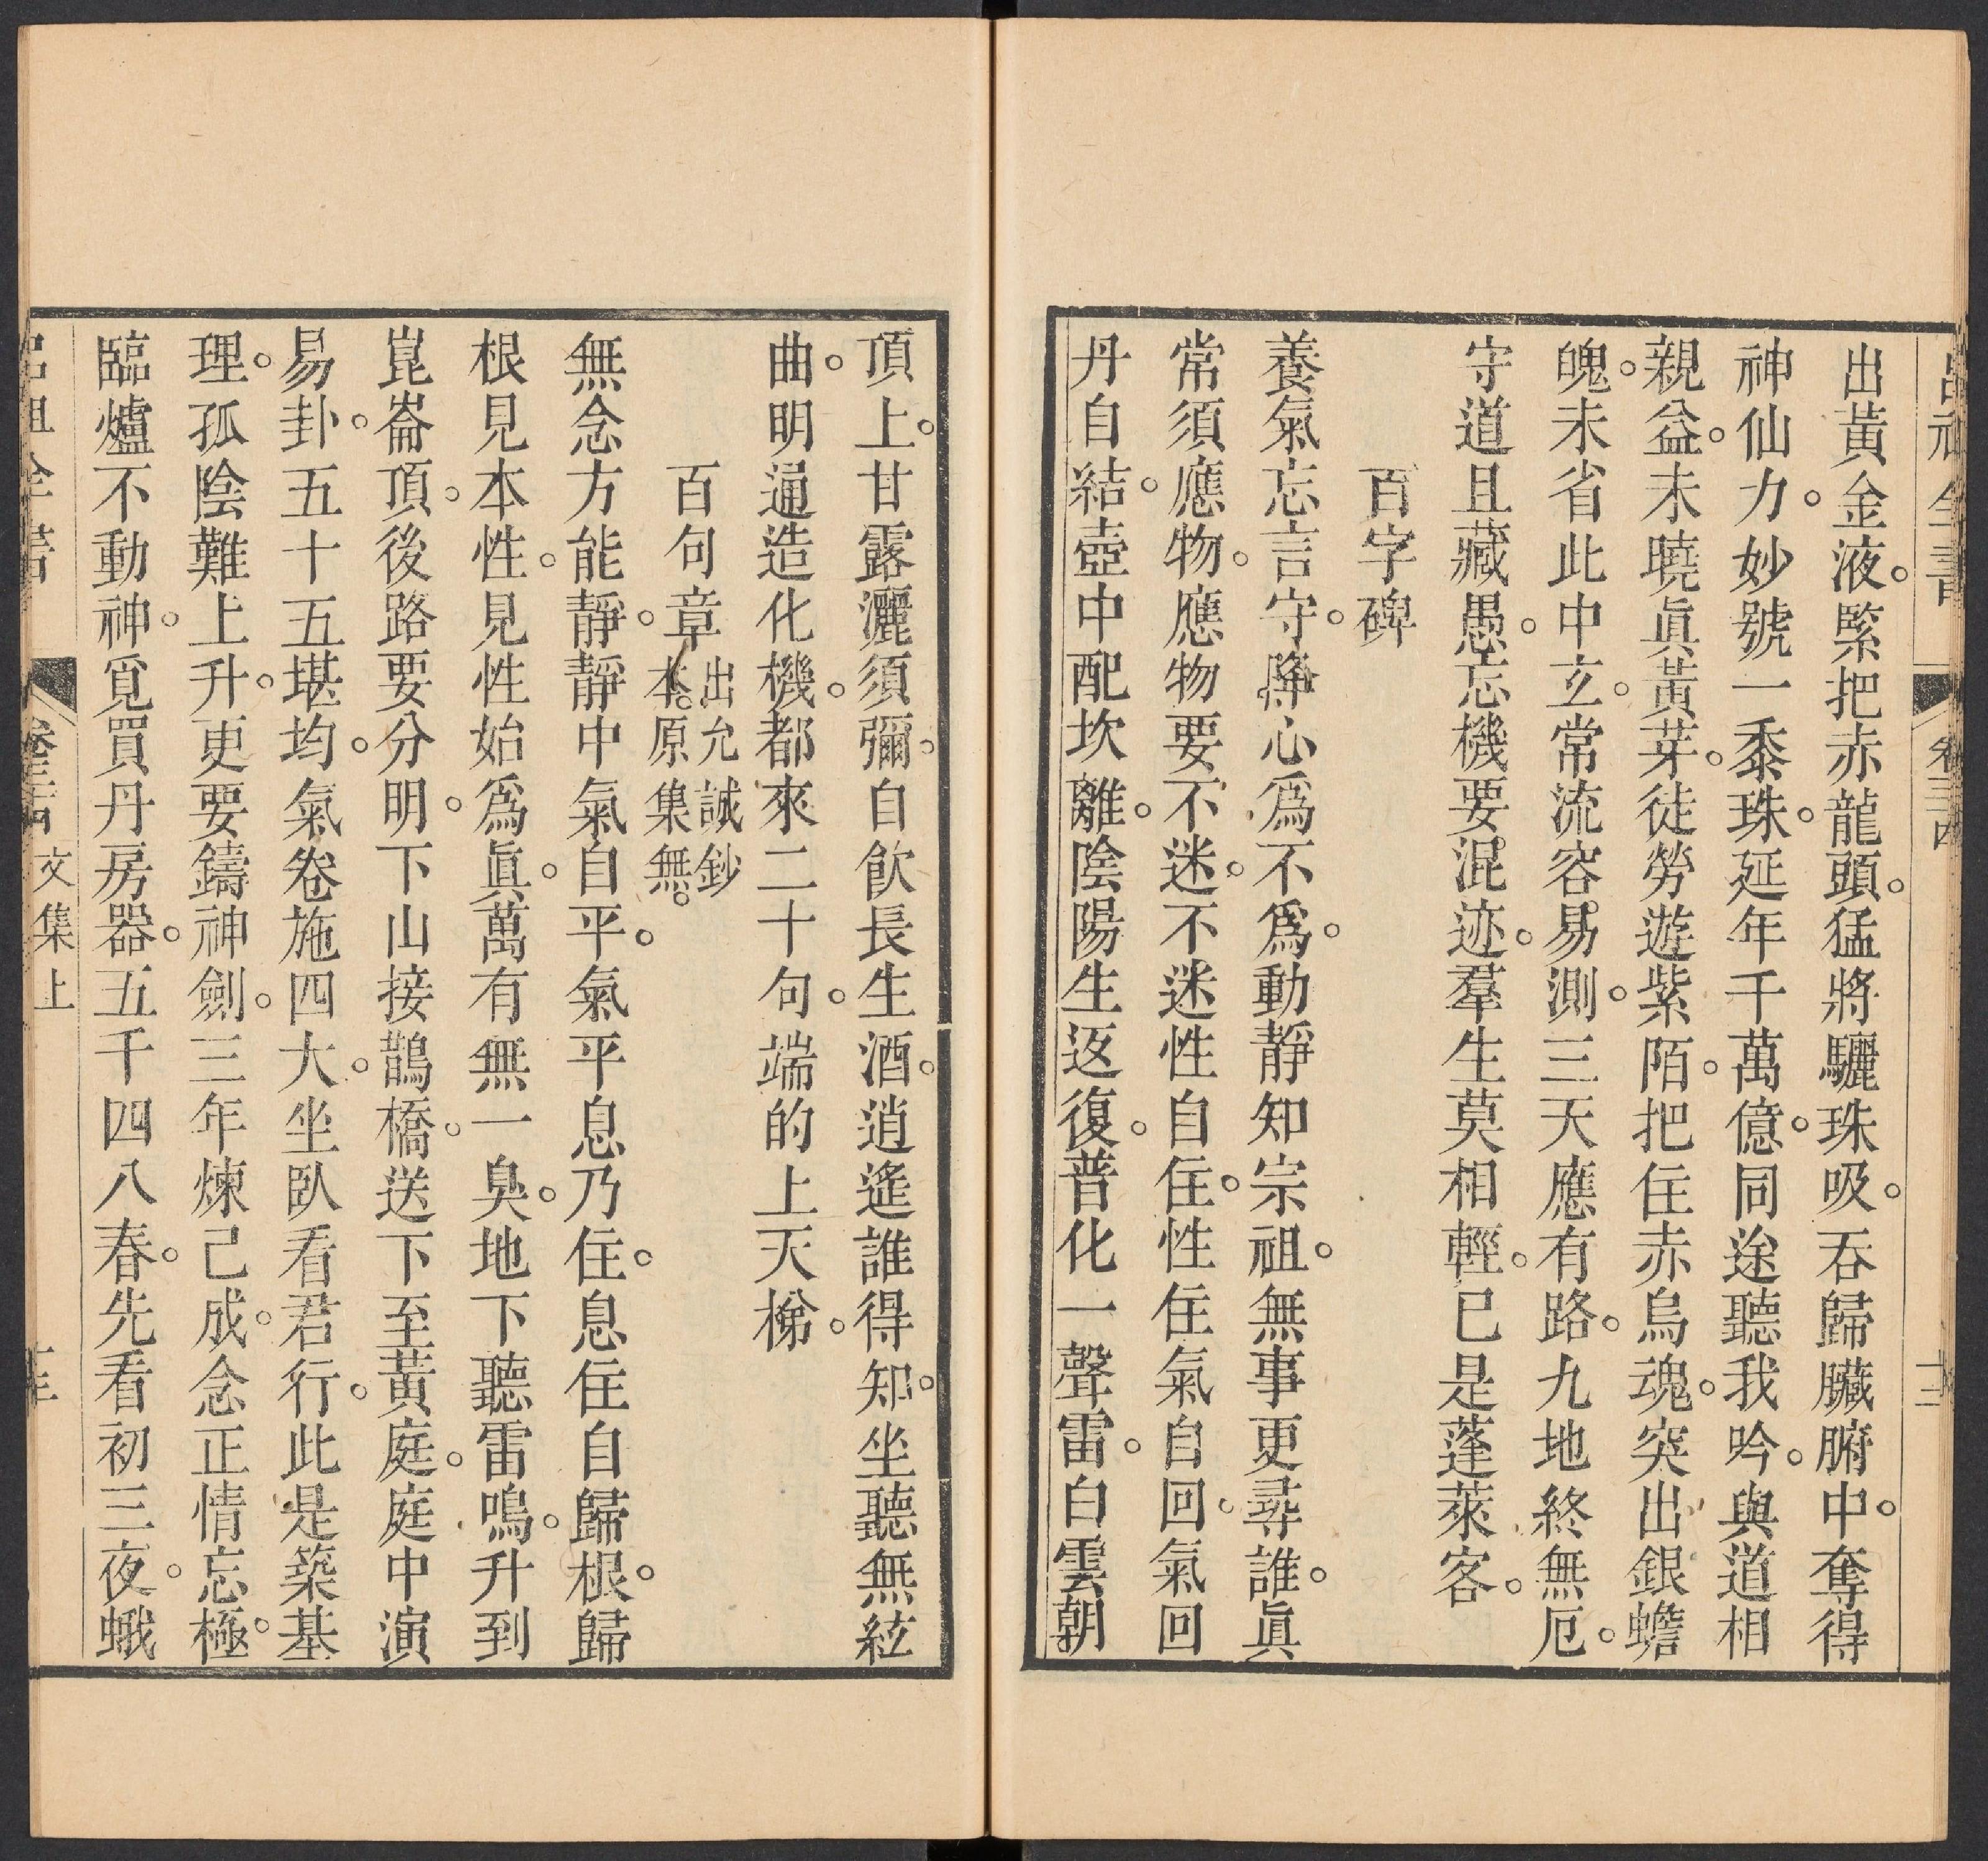 出黃金液。緊把赤龍頭。猛將驪珠吸。吞歸臟腑中。奪得
神仙力。妙號一黍珠。延年千萬億。同途聽我吟。與道相
親益。未曉眞黃芽。徒勞遊紫陌。把住赤烏魂。突出銀蟾
魄。未省此中玄。常流容易測。三天應有路。九地終無厄。
守道且藏愚。忘機要混迹。羣生莫相輕。已是蓬萊客。
百字碑
養氣忘言守。降心爲不爲。動靜知宗祖。無事更尋誰。眞
常須應物。應物要不迷。不迷性自住。性住氣自回。氣回
丹自結。壺中配坎離。陰陽生返復。普化一聲雷。白雲朝
頂上。甘露灑須彌。自飲長生酒。逍遙誰得知。坐聽無絃
曲。明通造化機。都來二十句。端的上天梯。
百句章 出允誠鈔本。原集無。
無念方能靜。靜中氣自平。氣平息乃住。息住自歸根。歸
根見本性。見性始爲眞。萬有無一臭。地下聽雷鳴。升到
崑崙頂。後路要分明。下山接鵲橋。送下至黃庭。庭中演
易卦。五十五堪均。氣卷施四大。坐臥看君行。此是築基
理。孤陰難上升。更要鑄神劍。三年煉己成。念正情忘極。
臨爐不動神。覓買丹房器。五千四八春。先看初三夜。蛾
呂祖全書 卷三四 文集上